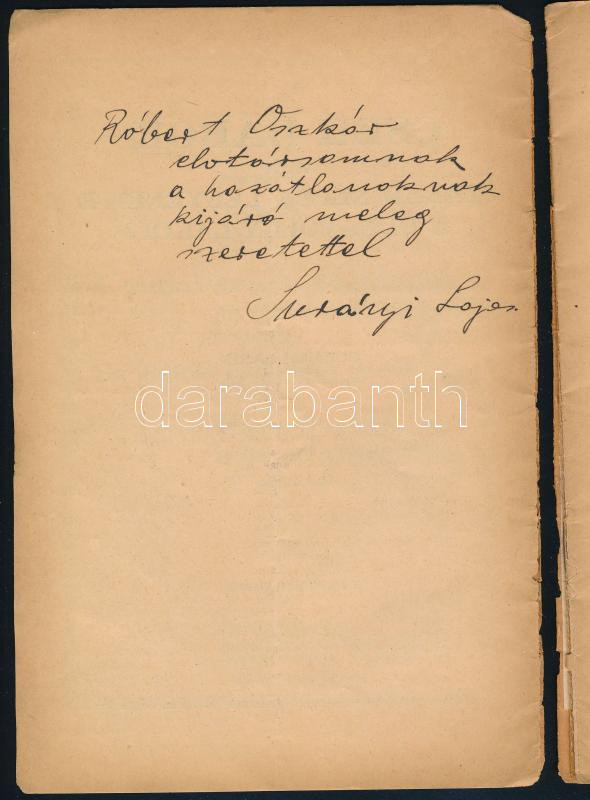 Róbert Oszkár
elvtársamnak
a hazátlanoknak
kijáró meleg
szeretettel
Surányi Lajos.
darabanth